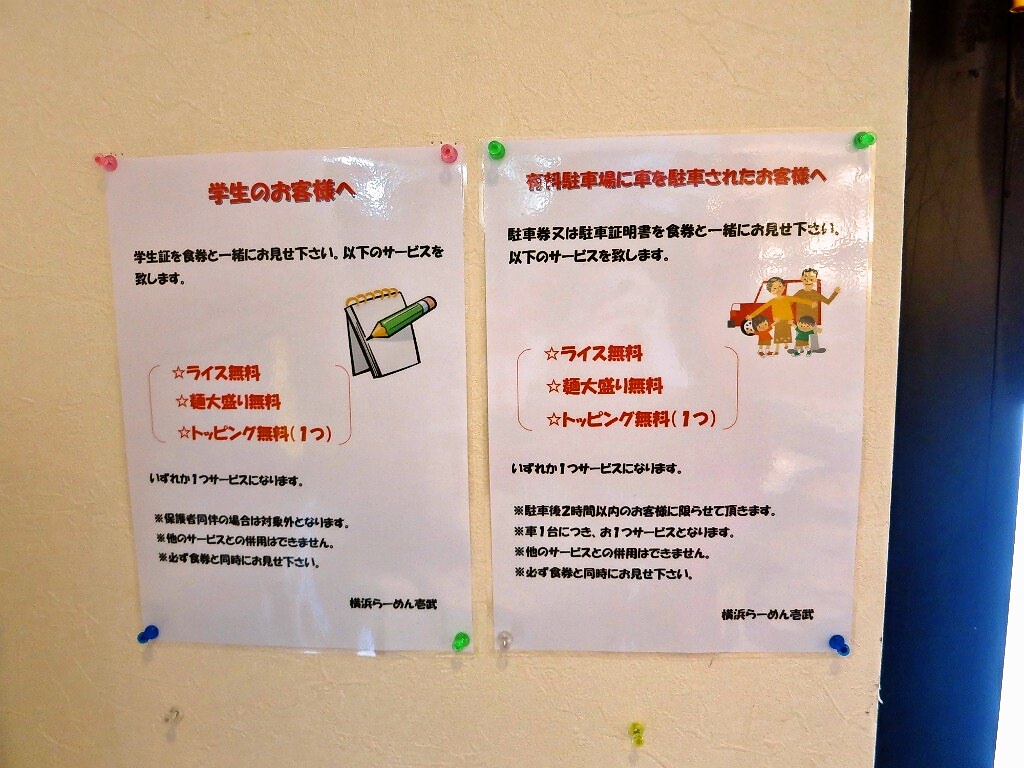 学生のお客様へ
学生証を食券と一緒にお見せ下さい。以下のサービスを
致します。
☆ライス無料
☆麺大盛り無料
☆トッピング無料(1つ)
いずれか1つサービスになります。
※保護者同伴の場合は対象外となります。
※他のサービスとの併用はできません。
※必ず食券と同時にお見せ下さい。
横浜らーめん壱武
有料駐車場に車を駐車されたお客様へ
駐車券又は駐車証明書を食券と一緒にお見せ下さい。
以下のサービスを致します。
☆ライス無料
☆麺大盛り無料
☆トッピング無料(1つ)
いずれか1つサービスになります。
※駐車後2時間以内のお客様に限らせて頂きます。
※車1台につき、お1つサービスとなります。
※他のサービスとの併用はできません。
※必ず食券と同時にお見せ下さい。
横浜らーめん壱武